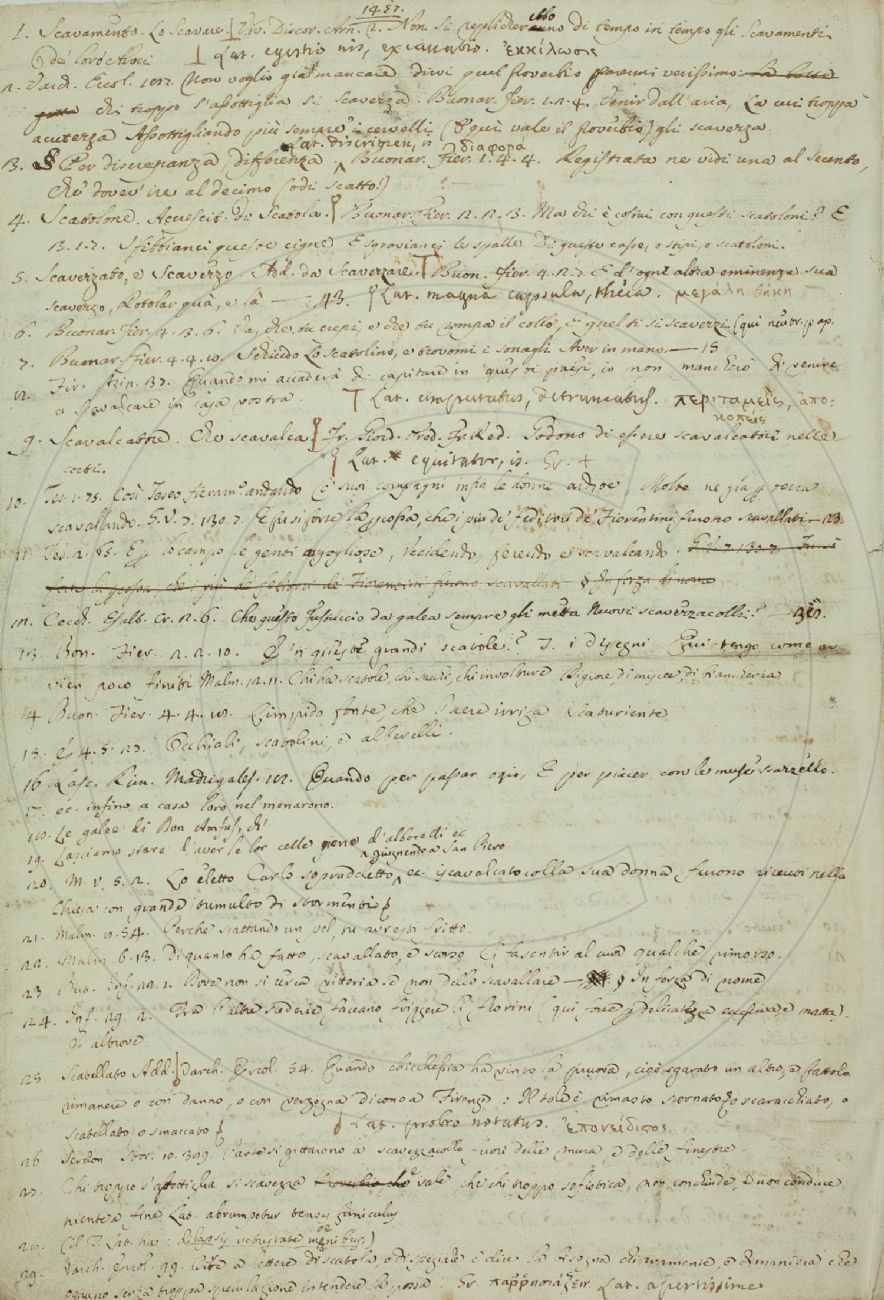 1457.
1. Scavamento. Lo Scavare. Viv. Discor. Arn. 2. Non si replicherebbono di tempo in tempo gli Scavamenti
dei loro Lat. egestio nis, excavatio. ἐκκίλωσις
2. Varch. Ercol. Non voglio già mancare dirvi quel proverbio parermi verissimo
chi troppo s'assottiglia si scaverza. Buonar. Fier. 1. 2. 4. Venir dall' aria, La cui troppa
acutezza Assottigliando più sempre i cervelli (E qui vale il proverbio) gli scaverza.
Lat. discrimen, is διαφορά
3. Per discrepanza, differenza Buonar. Fier. 1. 4. 4. Registrata ne vidi una al secento,
Che dover ire al decimo (odi scatto!)
4. Scatolone. Accrescit. di Scatola. Buonar. Fier. 2. 2. 13. Ma chi è costui con questi scatoloni? E
Sfibbianci queste cigne E sgravianci le spalle Di queste casse, o stipi, o scatoloni.
5. Scaverzato, e Scaverzo. Add. da Scaverzare. Buon. Fier. 4. 2. 7. E d' ogni altra eminenza sua
scaverzo, Rotolar quà, e là 43. Lat. magna capsula, theca. μεγάλη θήκη
6. Buonar. Fier. 4. 3. 6. Va, che tu crepi, e che tu rompa il collo, E quel ti si scaverzi (qui neutr. pap.
7. Buonar. Fier. 4. 4. 10. Schiudo Lo scatolino, e trovomi i sonagli Aver in mano. 15
Fir. Asin. 137. Quando mi accaderà di capitare in questi paesi, io non mancherò di venire
a scavalcare in casa vostra. Lat. amputatus, detruncatus. περιταμείς, ἀπο-
κοπείς
9. Scavalcatore. Che scavalca Fr. Giord. Pred. Fr. Red. Godono di essere scavalcatori nelle
corti. Lat. equitator, is. Gr. +
10. Tes. 1. 75. Così Teseo fieram. andando E' suoi compagni infra le donne ardite, Molte ne già per terra
scavallando. G. V. 7. 130. 7. E fu sì forte la percossa, che i più de' feditori de' Fiorentini furono scavallati 23.
11. Tes. 2. E per lo campo le genti orgogliose, Uccidendo, ferendo, e scavalcando.
Cecch. Esalt. Cr. 2. 6. Che questo fastuccio da galea sempre gli metta Nuovi scavezzacolli?
13. Bon. Fier. 2. 2. 10. E 'n queste grandi scatole? I. i disegni Qui tengo come av
vien poco finiti Malm. Chi ha scatole, chi sacchi, chi involture Bigoie, di miscee, di biancheria
14 Buon. Fier. 4. 4. Limpido fonte, che l' aere irriga Scaturiente
15. E 4. 5. Occhiali, scatolini, e alberelli.
16 Lasc. Rim. Madrigales. Quando per passar ozio, E per piacer con le muse scarzello.
17. ec. infino a casa loro nel menarono.
Le galee di Don Amfus, di
19. Lasciamo stare d' aver le lor celle piene d' alberelli ec
giugnendo a San Piero
20. M. V. 5. 2. Lo eletto Carlo sopraddetto ec. iscavalcato colla sua donna, furono ricevuti nella
Chiesa con grande tumulto di stormenti
21. Malm. 54. Perchè scattando un pel, tu avresti fritto
22. Malm. 6. 13. Di quanto ha fatto, scavallato, e scorso Ei fa sentir al cuor qualche rimorso.
23 But. Inf. Dove non si cerca vittoria se non dello scavallare In forza di nome
24. Inf. 29. 2. Tra l' altre scederie facevano friggere li fiorini (qui forse p delicatezza eccessiva, e matta).
E altrove
25. Scatellato Add. Varch. Ercol. 54. Quando chicchessia ha vinto la pruova, cioè sgarato un altro, e fattolo
rimanere o con danno, o con vergogna dicono a Firenze: Il tale è rimasto scornato, o scaracchiato, o
scatellato, o smaccato Lat. probro notatus. ἐπονείδιστος.
26. Serdon. Stor. 10. 399. Parte si gittarono a scavezzacollo fuori delle mura, e delle finestre.
27. Chi troppo s' assottiglia si scavezza vale che chi troppo sofistica, non conchiude, e non conduce
niente a fine Lat. abrumpetur tensus funiculus
(il T. Lat. ha: delapsis vetustate menibus.)
29. Varch. Ercol. 99. Dire a lettere di scatola, o di speziale è dire la bisogna chiaramente, e di maniera che
ognuno senza troppa speculazione intendere la possa. Gr. παῤῥησιάζειν. Lat. apertissime